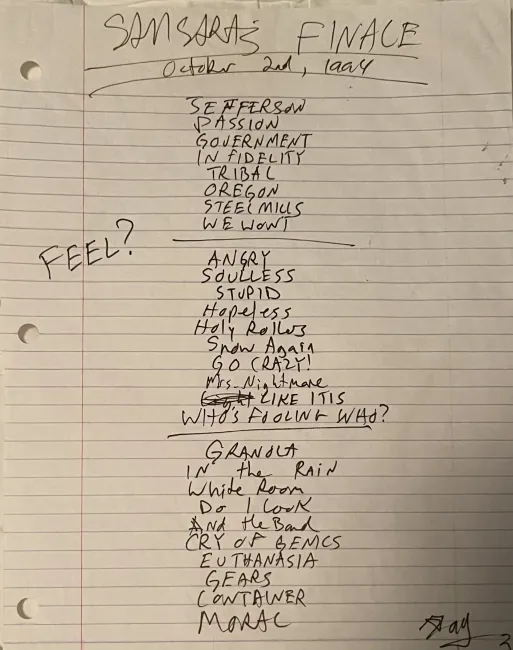 SAMSARA'S FINALE
October 2nd, 1994
JEFFERSON
PASSION
GOVERNMENT
IN FIDELITY
TRIBAL
OREGON
STEEL MILLS
WE WON'T
FEEL?
ANGRY
SOULLESS
STUPID
Hopeless
Holy Rollers
Snow Again
GO CRAZY!
Mrs. Nightmare
LIKE IT IS
WHO'S FOOLING WHO?
GRANOLA
IN the RAIN
White Room
Do I Look
And the Band
CRY OF
EUTHANASIA
GEARS
CONTAINER
MORAL